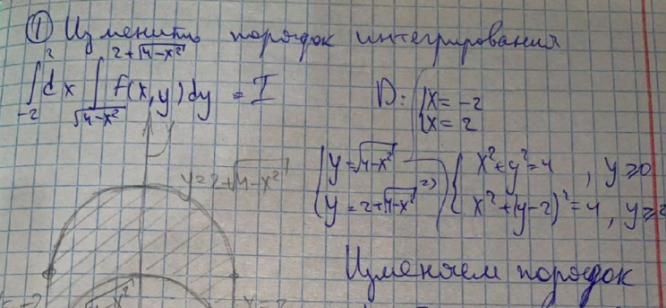 ① Изменить порядок интегрирования
∫₋₂² dx ∫_{√4-x²}^{2+√4-x²} f(x,y)dy = I
D: { x = -2
x = 2
y
y=2+√4-x²
{ y=√4-x² => { x²+y²=4 , y≥0
y=2+√4-x² x²+(y-2)²=4, y≥2
Изменяем порядок
√4-x²